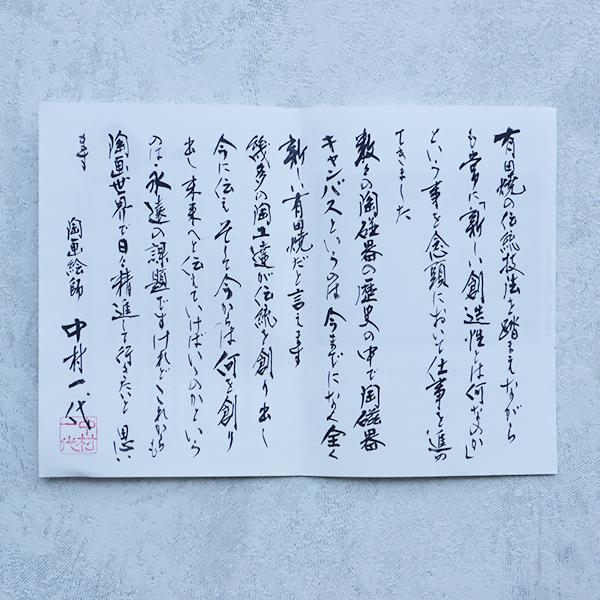 有田焼の伝統技法を踏まえながら
も常に「新しい創造性とは何なのか」
という事を念頭において仕事を進め
てきました
数々の陶磁器の歴史の中で陶磁器
キャンバスというのは今までになく全く
新しい有田焼だと言えます
幾多の陶工達が伝統を創り出し
今に伝え そして今からは何を創り
出し 未来へと伝えていけばいいのかという
のは、永遠の課題ですけれどこれからも
陶画世界で日々精進して行きたいと思い
ます
陶画絵師 中村一代
中村
一代